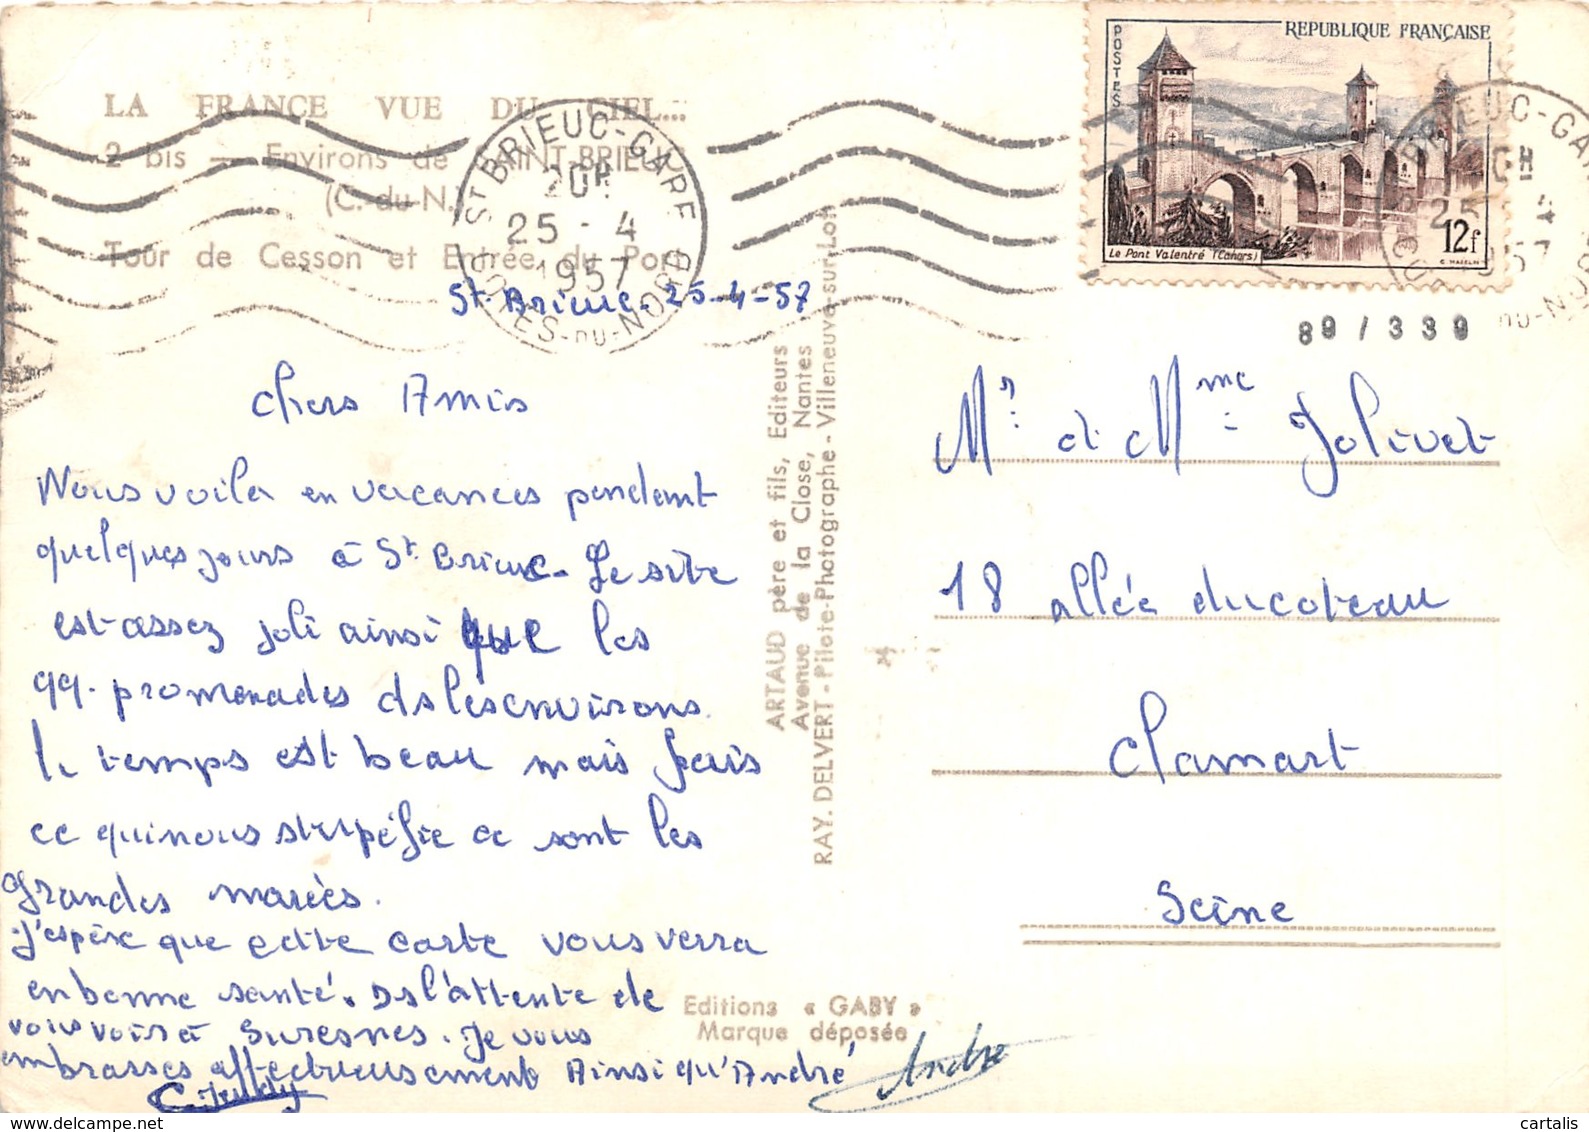 LA FRANCE VUE DU CIEL...
2 bis — Environs de SAINT-BRIEUC
(C.-du-N.)
Tour de Cesson et Entrée du Port
ST BRIEUC-GARE
20H
25 - 4
1957
COTES-DU-NORD
St. Brieuc - 25-4-57
Chers Amis
Nous voila en vacances pendant
quelques jours à St Brieuc. Le site
est assez joli ainsi que les
qq. promenades ds les environs.
le temps est beau mais frais
ce qui nous stupéfie ce sont les
grandes marées.
J'espère que cette carte vous verra
en bonne santé. Ds l'attente de
vous voir à Suresnes. Je vous
embrasses affectueusement Ainsi qu'André
André
ARTAUD père et fils, Editeurs
Avenue de la Close, Nantes
RAY. DELVERT - Pilote-Photographe - Villeneuve-sur-Lot
Editions « GABY »
Marque déposée
REPUBLIQUE FRANÇAISE
POSTES
12f
Le Pont Valentré (Cahors)
89 / 339
Mr. et Mme Jolivet
18 allée du coteau
Clamart
Seine
cartalis
www.delcampe.net